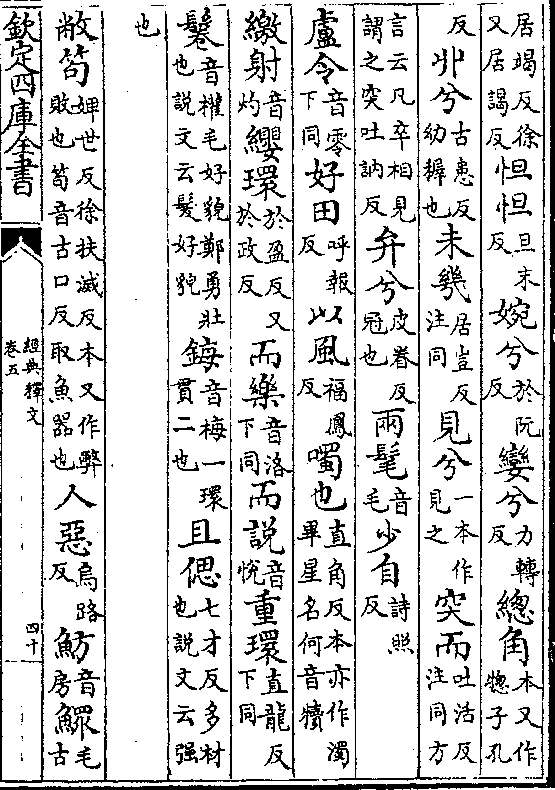 居竭反徐又居謁反怛怛旦末反婉兮於阮反孌兮力轉反總角本又作惣子孔
反丱兮古患反幼穉也未幾居豈反注同見兮一本作見之突而吐活反注同方
言云凡卒相見謂之突吐訥反弁兮皮眷反冠也兩髦音毛少自詩照反
盧令音零下同好田呼報反以風福鳳反噣也直角反本亦作濁畢星名何音犢
繳射音灼纓環於盈反又於政反而樂音洛下同而説音悅重環直龍反下同
鬈音權毛好貌鄭勇壯也說文云髮好貌鋂音梅一環貫二也且偲七才反多材也說文云强
也
敝笱婢世反徐扶滅反本又作弊敗也笱音古口反取魚器也人惡烏路反魴音房鰥毛古
欽定四庫全書
經典釋文
卷五
四十